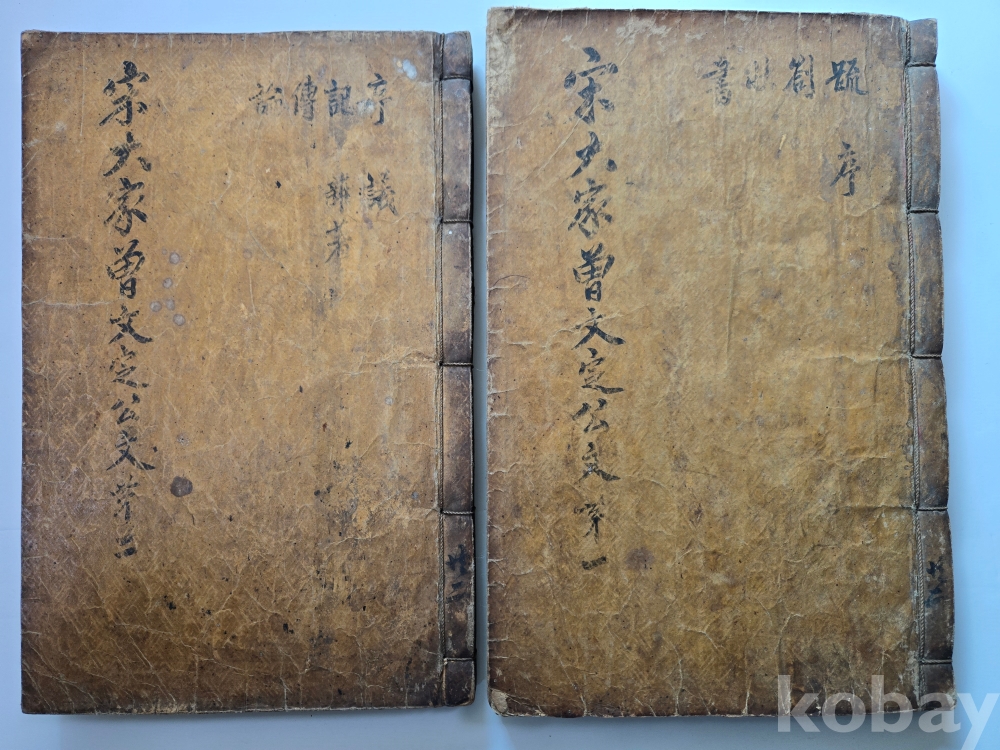 序 議
記 雜著
傳
論
宋大家曾文定公文 苐二
廿二
疏 序
劄
狀
書
宋大家曾文定公文 苐一
kobay